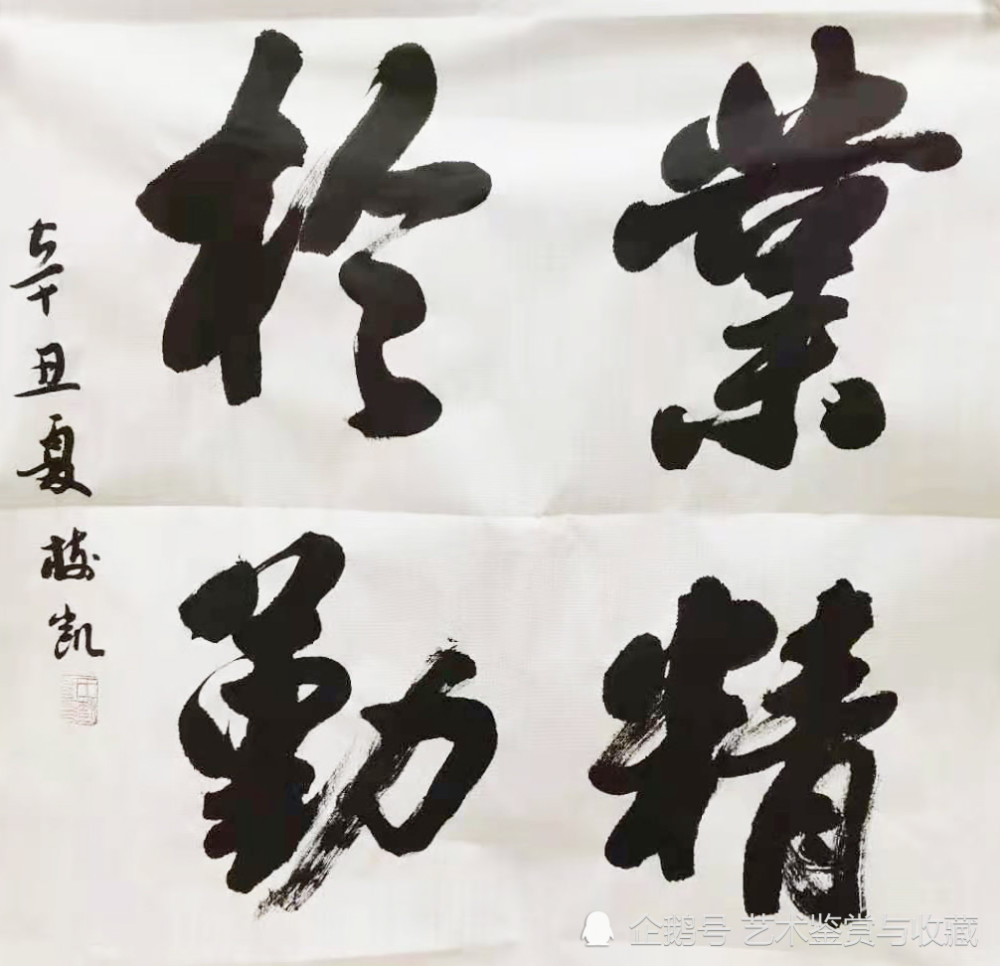 業精
於勤
辛丑夏 梅凯
企鹅号 艺术鉴赏与收藏